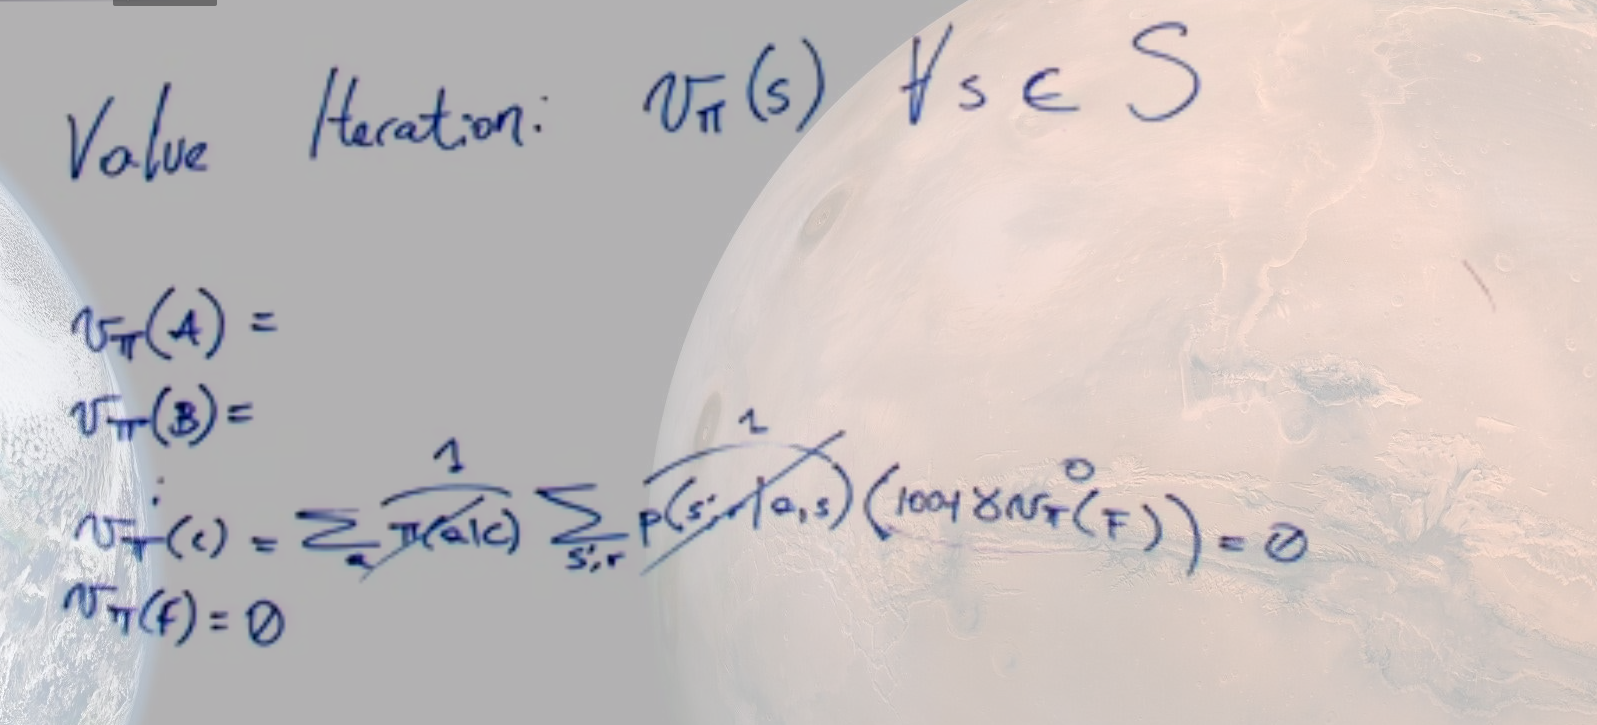 Value Iteration: v_π(s) ∀s ∈ S
v_π(A) =
v_π(B) =
⋮
v_π(c) = Σ_a π(a|c) 1 Σ_{s',r} p(s',r|a,s) 1 (100+γv_π(F) 0) = 0
v_π(F) = 0